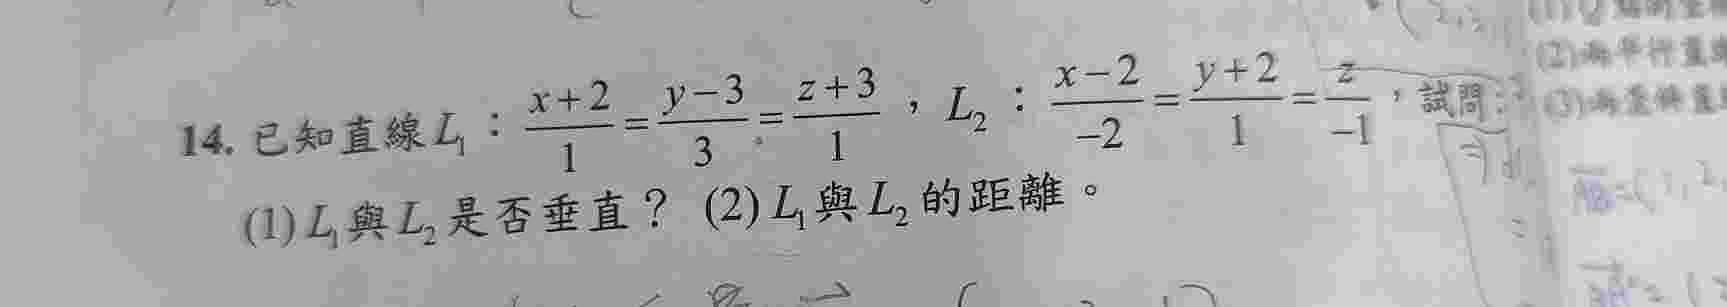 14. 已知直線 L₁：(x+2)/1 = (y−3)/3 = (z+3)/1，L₂：(x−2)/−2 = (y+2)/1 = z/−1，試問：
(1) L₁與L₂是否垂直？ (2) L₁與L₂的距離。
(2)兩平行